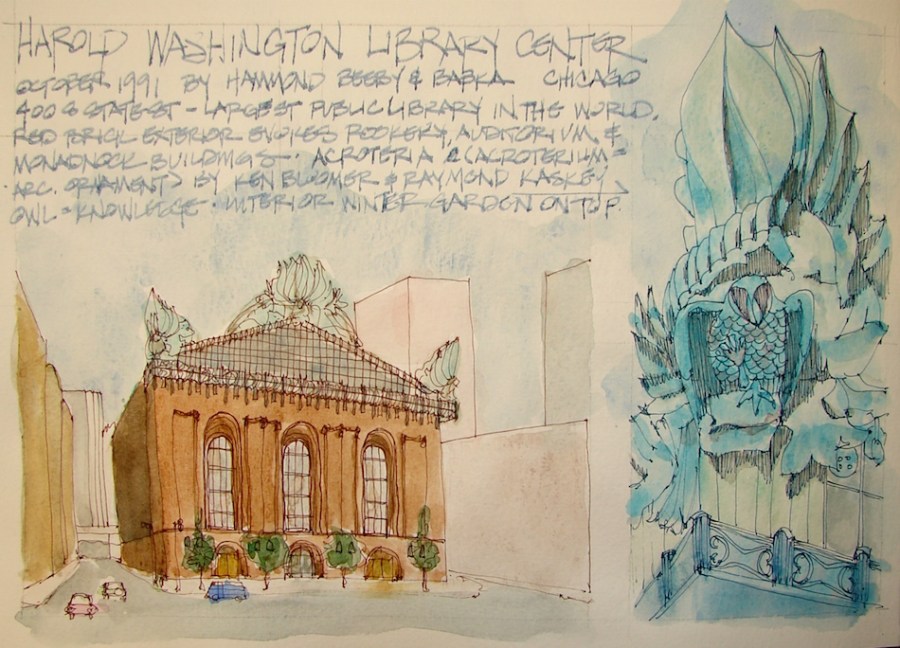 HAROLD WASHINGTON LIBRARY CENTER
OCTOBER 1991 BY HAMMOND BEEBY & BABKA CHICAGO
400 S STATE ST - LARGEST PUBLIC LIBRARY IN THE WORLD.
RED BRICK EXTERIOR EVOKES ROOKERY, AUDITORIUM &
MONADNOCK BUILDINGS. ACROTERIA (ACROTERIUM =
ARC. ORNAMENT) BY KEN BLOOMER & RAYMOND KASKEY
OWL = KNOWLEDGE. INTERIOR WINTER GARDEN ON TOP.